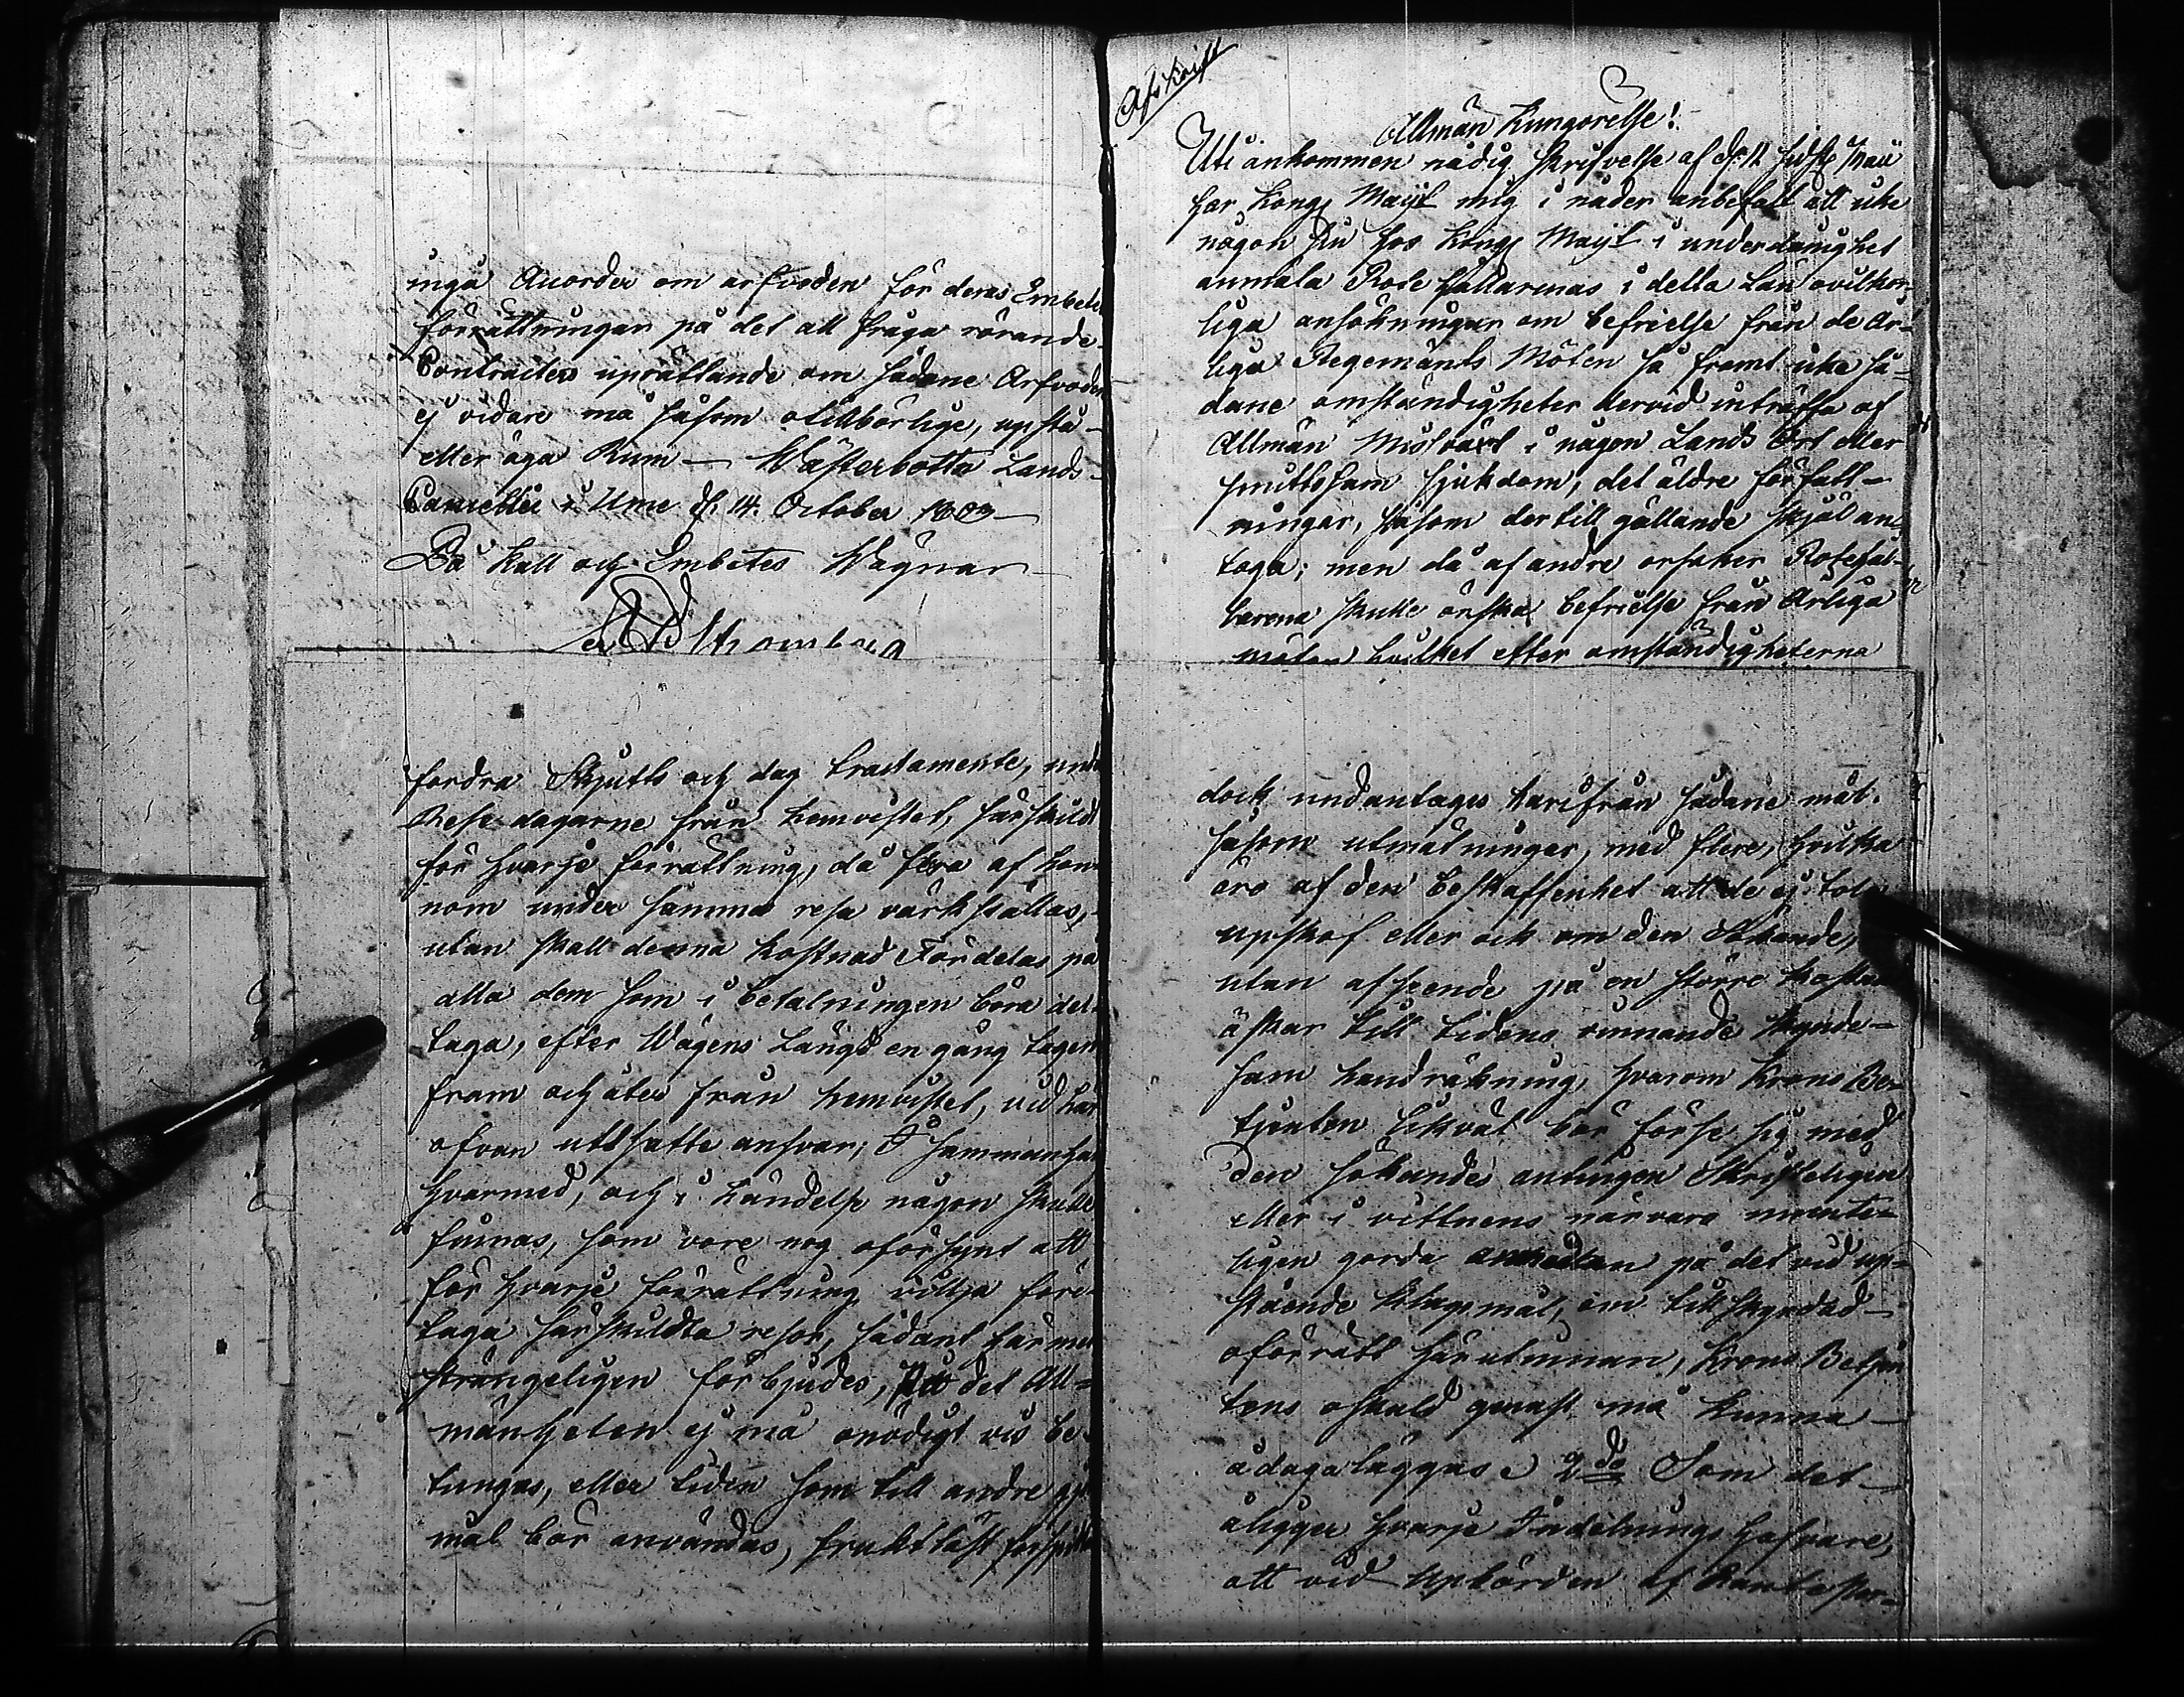 inga Accorder om arfvoden för deras Embets
förrättningar på det all fråga rörande
Contracters uprättande om sådane Arfvoden
ej vidare må såsom otillbörlige, upstå
eller äga Rum — Wästerbotten Lands-
Cancellie i Umeå d. 14 October 1803 —
På Kall och Embetes Wägnar
Stromberg
fordra Skjuts och dag tractamente, under
Rese dagarne från hemvistet, särskildt
för hvarje förrättning, då flera af honom
nom under samma resa värkställas,
utan skall denna kostnad Fördelas på
alla dem som i betalningen böra del-
taga, efter Wägens Längd en gång tagen
fram och åter från hemvistet, vid här
ofvan utsatte ansvar; I sammanhang
hvarmed, och i händelse någon skulle
finnas, som vore nog oförsynt att
för hvarje förrättning villja före-
taga särskildta resor, sådant härmed
strängeligen förbjudes, På det All-
mänheten ej må onödigt vis be-
tungas, eller tiden som till andre gö
mål bör användas, fruktlöst förspilla
Afskrift
Allmän Kungörelse!
Uti ankommen nådig skrifvelse af d. 12 sidstl.
har Kongl Maijt mig i nåder anbefalt att icke
någon sin hos Kongl Maijt i underdånighet
anmäla Rotehållarenas i detta Län ovilkor-
liga ansökningar om befrielse från de år-
liga Regements Möten så framt icke så-
dane omständigheter dervid inträffa af
Allmän Missväxt i någon Lands Ort eller
smittosam sjukdom, det äldre författ-
ningar, såsom dertill gällande skjäl an-
taga; men då af andre orsaker Rotehål-
larena skulle önska befrielse från Årliga
möten hvilket efter omständigheterna
dock undantages härifrån sådane mål,
såsom utmätningar, med flere, hvilka
äro af den beskaffenhet att de ej tola
upskof eller ock om den Sökande,
utan afseende på en större kostnad
äskar till tidens vinnande skynde-
sam handräkning, hvarom Krono Be-
tjenten likväl bör förse sig med
den sökandes antingen Skrifteligen
eller i vittnens närvaro munte-
ligen gorde anmälan på det vid up-
stående klagomål, om tillskyndad
oförrätt härutinnan, Krono Betjen
tens oskuld genast må kunna
ådagaläggas 2do Som det
åligger hvarje Indelnings Hafvare,
att vid Upbörden af Rante Per-